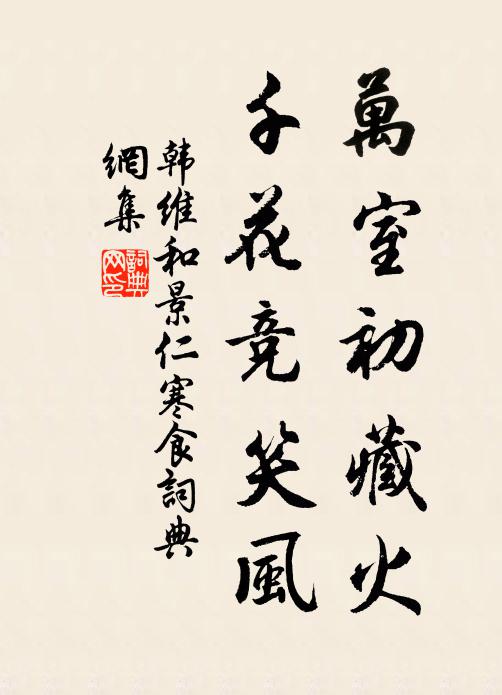 萬室初藏火
千花竞笑風
韩維和景仁寒食詞典
網集
詞典
网印